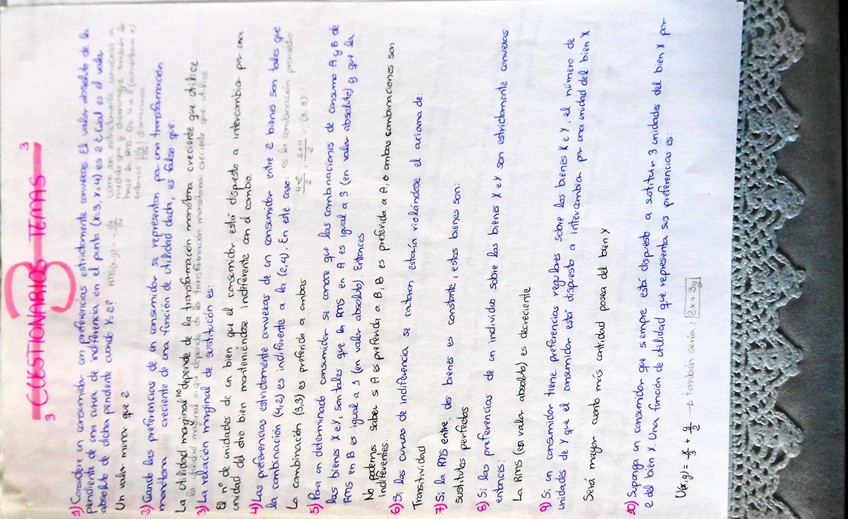 3 CUESTIONARIOS TEMAS 3
1) Considere un consumidor con preferencias estrictamente convexas. El valor absoluto de la
pendiente de una curva de indiferencia en el punto (x:3, Y:4) es 2 ¿Cuál es el valor
absoluto de dicha pendiente cuando Y=2?
Un valor menor que 2
2) Cuando las preferencias de un consumidor se representan por una transformación
monótona creciente de una función de utilidad dada, es falso que:
La utilidad marginal no depende de la transformación monótona creciente que utilice
3) La relación marginal de sustitución es:
El nº de unidades de un bien que el consumidor está dispuesto a intercambiar por una
unidad del otro bien manteniéndose indiferente con el cambio.
4) Las preferencias estrictamente convexas de un consumidor entre 2 bienes son tales que
la combinación (4,2) es indiferente a la (2,4). En este caso: es la combinación promedio
La combinación (3,3) es preferida a ambas
5) Para un determinado consumidor se conoce que las combinaciones de consumo A y B de
los bienes X e Y, son tales que la RMS en A es igual a 3 (en valor absoluto) y que la
RMS en B es igual a 1 (en valor absoluto). Entonces
No podemos saber si A es preferida a B, B es preferida a A, o ambas combinaciones son
indiferentes
6) Si las curvas de indiferencia se cortaran estaría violándose el axioma de
Transitividad
7) Si la RMS entre dos bienes es constante, estos bienes son:
sustitutos perfectos
8) Si las preferencias de un individuo sobre los bienes X e Y son estrictamente convexas
entonces:
La RMS (en valor absoluto) es decreciente
9) Si un consumidor tiene preferencias regulares sobre los bienes X e Y, el número de
unidades de Y que el consumidor está dispuesto a intercambiar por una unidad del bien X
Será mayor cuanto más cantidad posea del bien Y
10) Suponga un consumidor que siempre está dispuesto a sustituir 3 unidades del bien X por
2 del bien X. Una función de utilidad que representa sus preferencias es:
U(x,y) = x/3 + y/2 → también sería: 2x + 3y